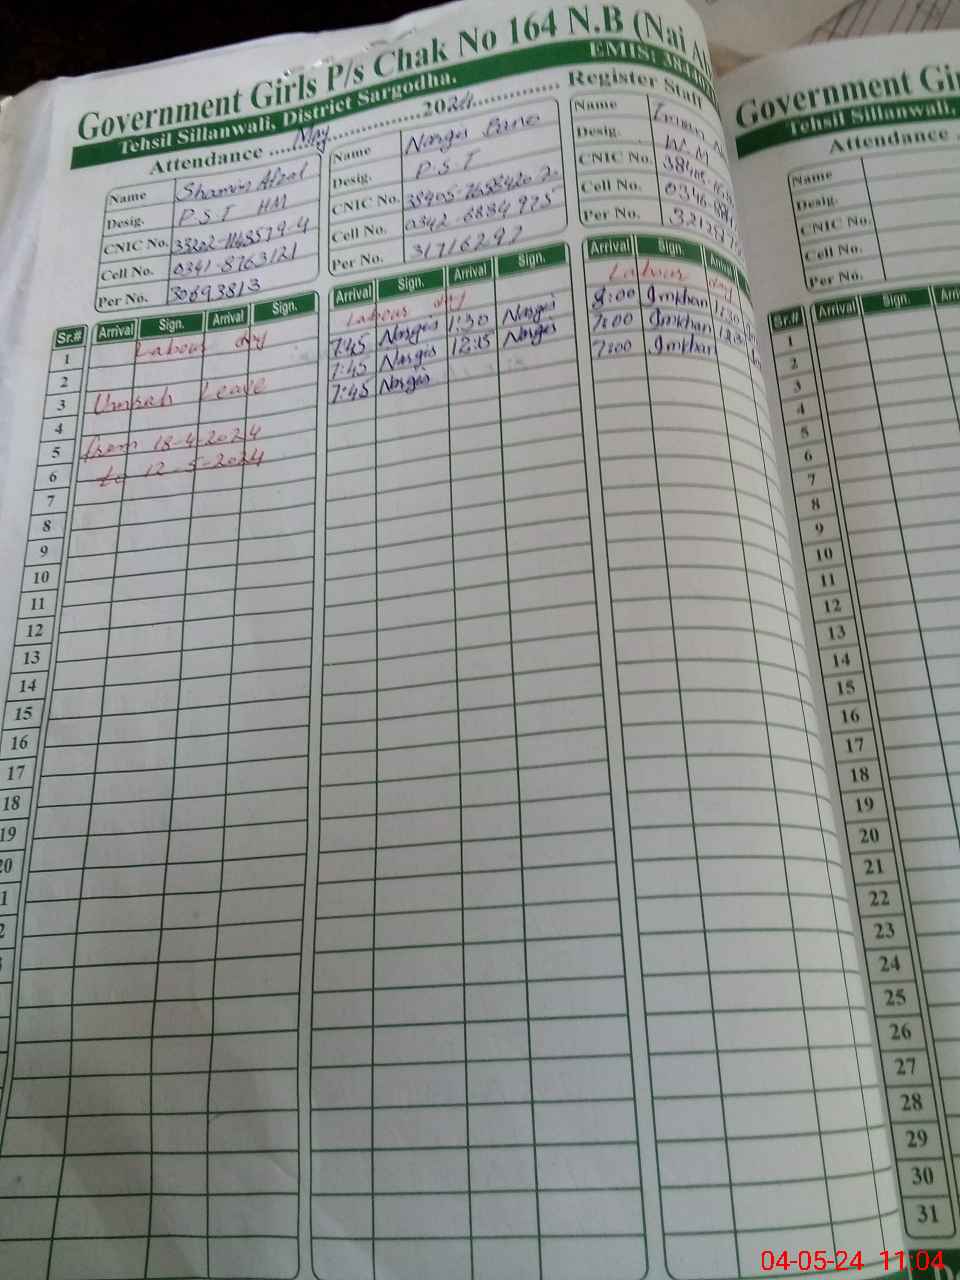 Government Girls P/s Chak No 164 N.B (Nai
Tehsil Sillanwali, District Sargodha.
EMIS:
Attendance ......May...............2024...............
Register Staff
Name Shamim Afzal
Desig. P.S.T HM
CNIC No.
Cell No. 0341-8763121
Per No. 30693813
Name Nargis Bano
Desig. P.S.T
CNIC No.
Cell No. 0342-6884975
Per No. 31716297
Name
Desig.
CNIC No.
Cell No.
Per No.
Sr.# Arrival Sign. Arrival Sign.
Arrival Sign. Arrival Sign.
Arrival Sign. Arrival
1 Labour day Labour day Labour day
2 7:45 Nargis 1:30 Nargis 8:00 Imkhan 1:30
3 Umrah Leave 7:45 Nargis 12:15 Nargis 7:00 Imkhan
4 7:45 Nargis 7:00 Imkhan
5 from 18-4-2024
6 to 12-5-2024
7
8
9
10
11
12
13
14
15
16
17
18
19
20
Government
Tehsil Sillanwali,
Attendance
Name
Desig.
CNIC No.
Cell No.
Per No.
Sr.# Arrival Sign.
1
2
3
4
5
6
7
8
9
10
11
12
13
14
15
16
17
18
19
20
21
22
23
24
25
26
27
28
29
30
31
04-05-24 11:04